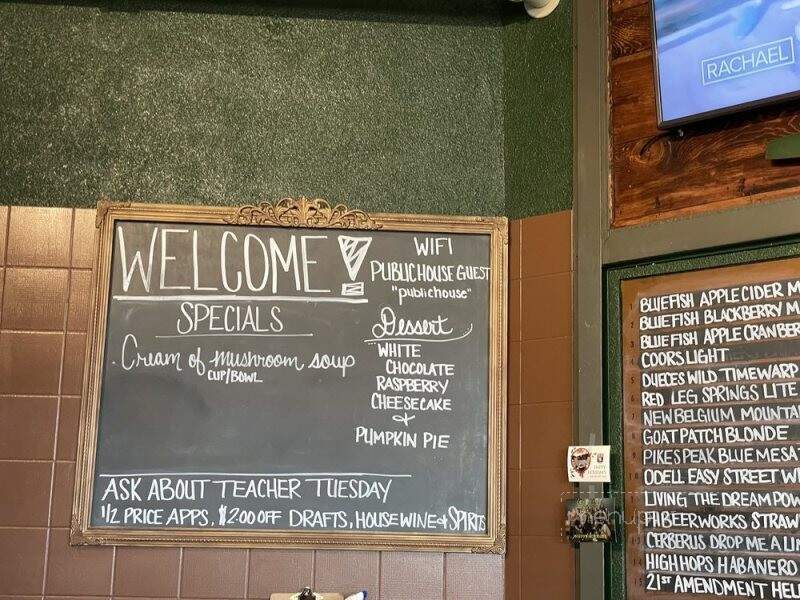 WELCOME!
SPECIALS
Cream of mushroom soup
CUP/BOWL
WIFI
PUBLICHOUSE GUEST
"publichouse"
Dessert
WHITE
CHOCOLATE
RASPBERRY
CHEESECAKE
&
PUMPKIN PIE
ASK ABOUT TEACHER TUESDAY
1/2 PRICE APPS, $2.00 OFF DRAFTS, HOUSE WINE & SPIRITS
RACHAEL
BLUEFISH APPLE CIDER M
BLUEFISH BLACKBERRY M
BLUEFISH APPLE CRANBER
COORS LIGHT
DUECES WILD TIMEWARP
RED LEG SPRINGS LITE
NEW BELGIUM MOUNTA
GOAT PATCH BLONDE
PIKES PEAK BLUE MESA
ODELL EASY STREET W
LIVING THE DREAM POW
FH BEERWORKS STRAW
CERBERUS DROP ME A LI
HIGH HOPS HABANERO
21ST AMENDMENT HEL